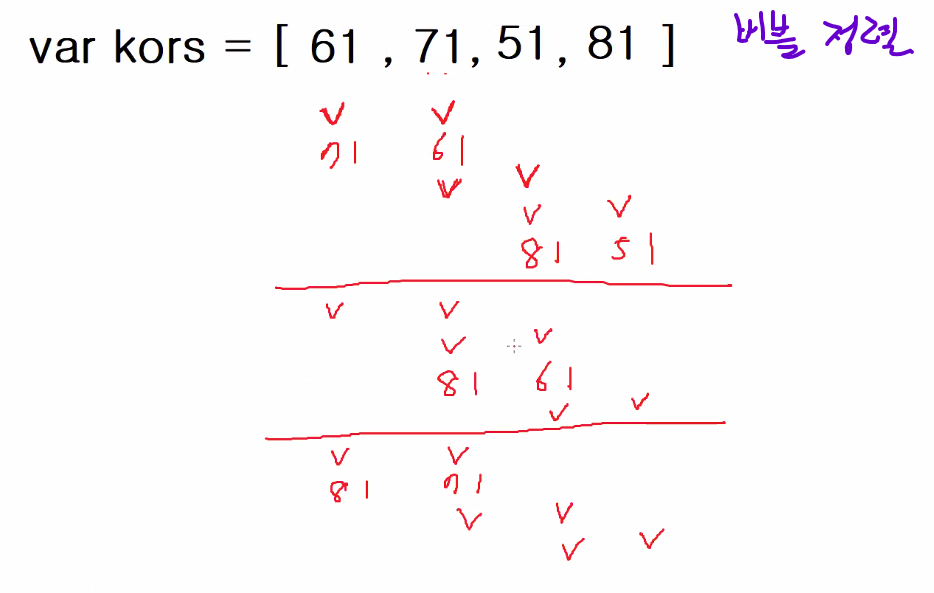 var kors = [ 61 , 71, 51, 81 ] 버블 정렬
v v
71 61
v v
v v
81 51
v v
v v
81 61
v v
v v
81 71
v v
v v